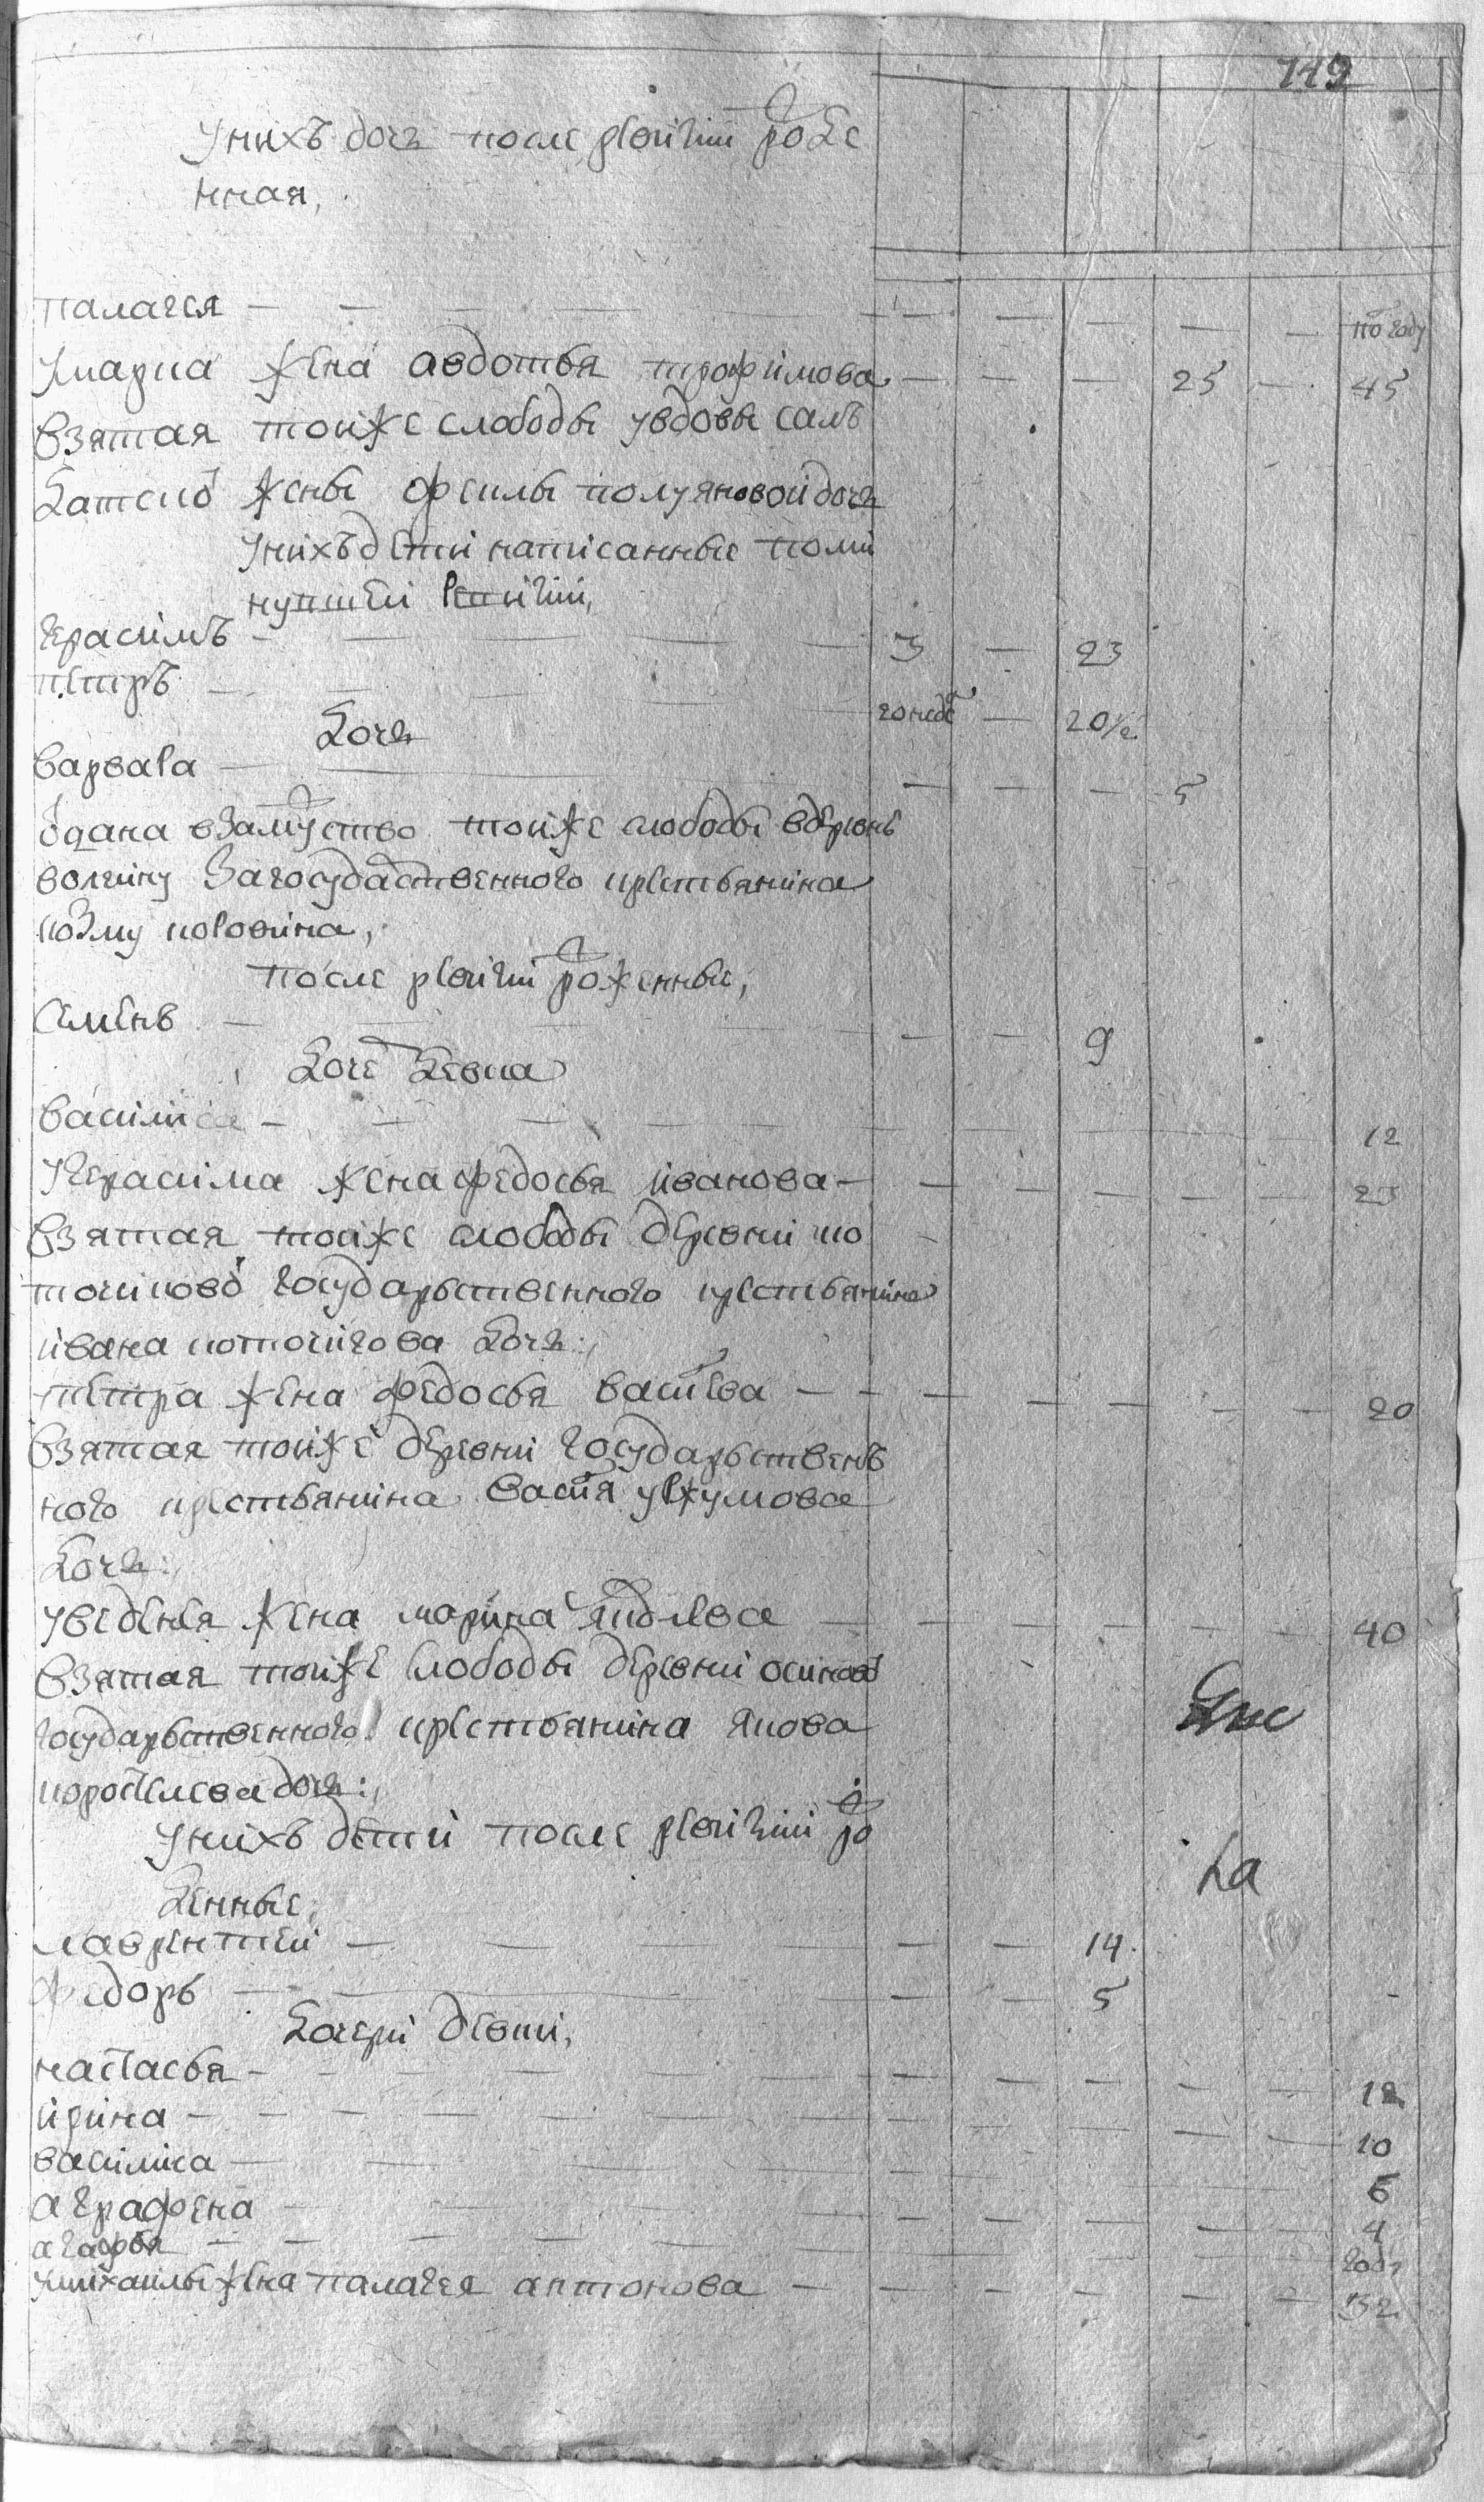 149
У нихъ дочь после ревизии рожде
нная,
палагея — — — — — — — — — — — пол году
У марка жена авдотья трофимова — — — 25 — 45
взятая той же слободы у вдовы салъ
датской жены феклы полуяновой дочь
У нихъ дети написанные по ми
нувшей ревизии,
Герасимъ — — — — 3 — 23
петръ — — — — 20 недель — 20 1/2
Дочь
варвара — — — — — 5
отдана в замуство той же слободы в деревню
волгину за государственного крестьянина
козму коковина,
после ревизии рожденные,
Семенъ — — — — — — 9
Дочь Девка
василиса — — — — — — — 12
У Герасима жена федосья иванова — — — — — — 23
взятая той же слободы деревни по
точиловой государьственного крестьянина
ивана поточилова дочь:
петра жена федосья васильева — — — — — — — 20
взятая той же деревни государьственъ
ного крестьянина василья
Дочь:
жена марина яковлева — — — — — — 40
взятая той же слободы деревни осиновой
государьственного крестьянина якова
коростелева дочь:
У нихъ дети после ревизии ро
жденные,
ка
лаврентей — — — — — — 14
федоръ — — — — — 5
Дочери девки,
настасья — — — — — — — — 12
ирина — — — — — — — — 10
василиса — — — — — — 6
аграфена — — — — — — — 4
агафья — — — — — — годъ
у михаилы жена палагея антонова — — — — — — 32